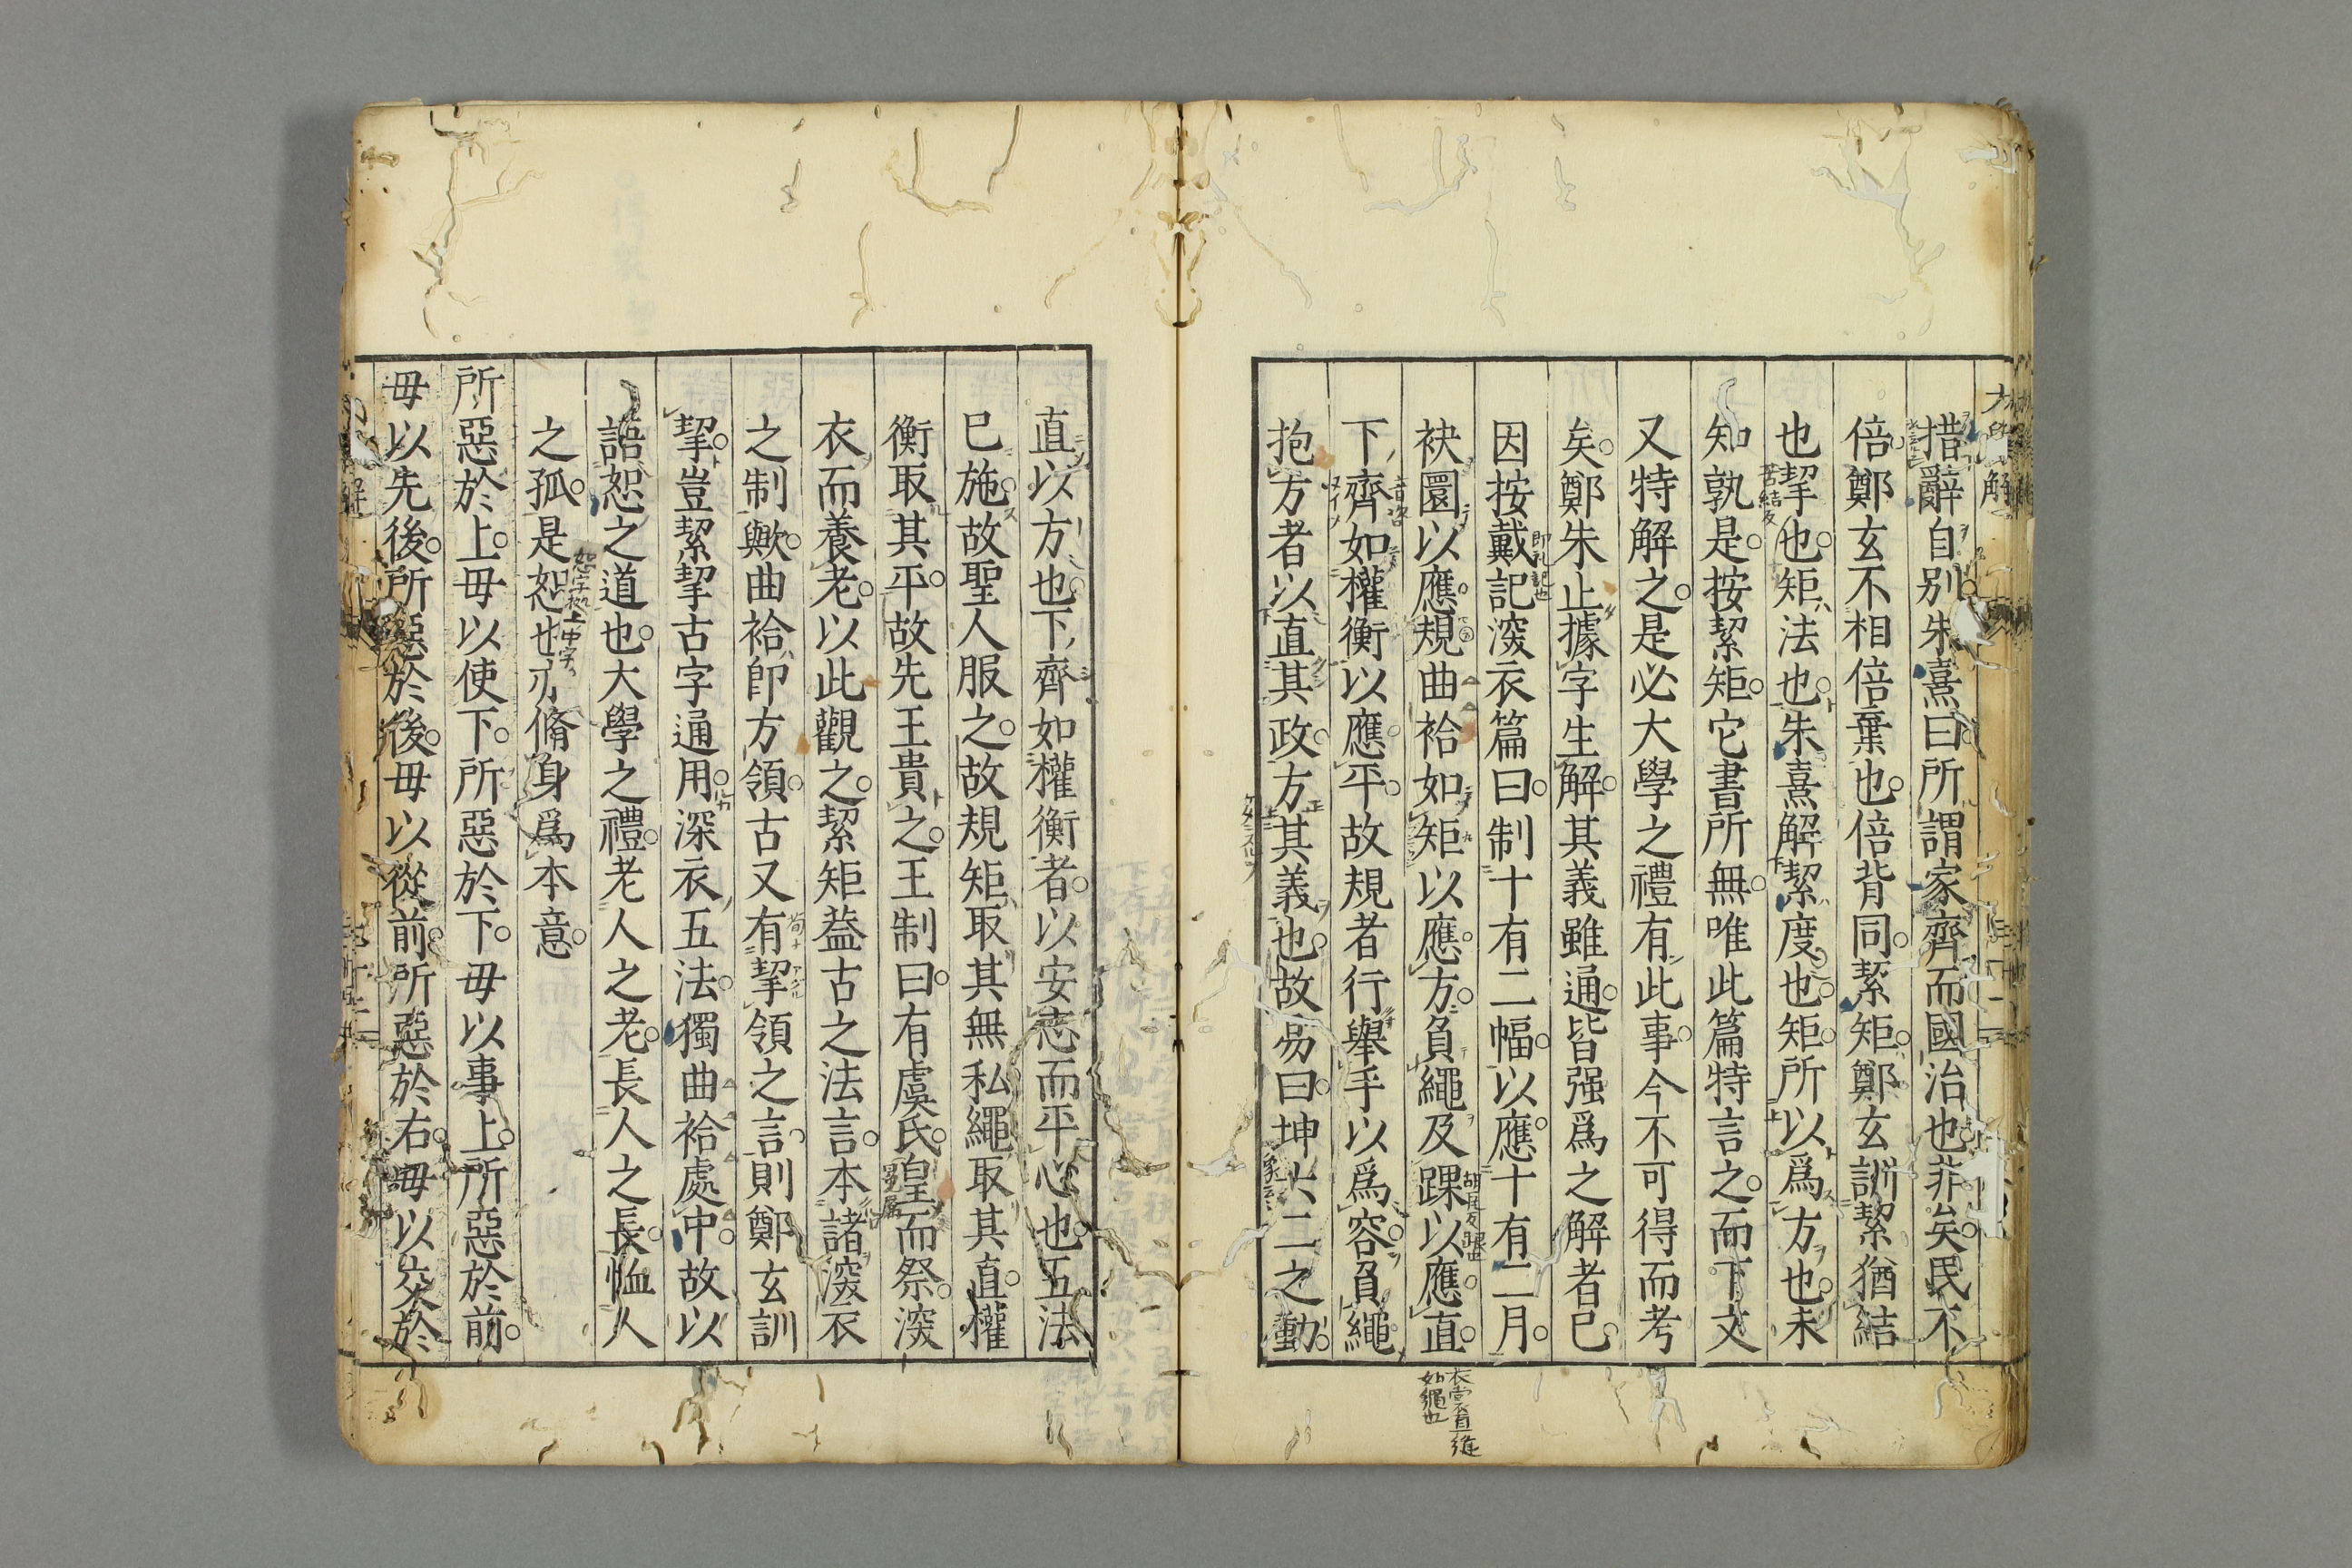 措辭自別朱熹曰所謂家齊而國治也非矣民不
倍鄭玄不相倍棄也倍背同絜矩鄭玄訓絜猶結
也挈也矩法也朱熹解絜度也矩所以爲方也未
知孰是按絜矩它書所無唯此篇特言之而下文
又特解之是必大學之禮有此事今不可得而考
矣鄭朱止據字生解其義雖通皆强爲之解者已
因按戴記深衣篇曰制十有二幅以應十有二月
袂圜以應規曲袷如矩以應方負繩及踝以應直
下齊如權衡以應平故規者行舉手以爲容負繩
抱方者以直其政方其義也故易曰坤六二之動
直以方也下齊如權衡者以安志而平心也五法
已施故聖人服之故規矩取其無私繩取其直權
衡取其平故先王貴之王制曰有虞氏皇而祭深
衣而養老以此觀之絜矩蓋古之法言本諸深衣
之制歟曲袷卽方領古又有挈領之言則鄭玄訓
挈豈絜挈古字通用深衣五法獨曲袷處中故以
語恕之道也大學之禮老人之老長人之長恤人
之孤是恕也亦脩身爲本意
所惡於上毋以使下所惡於下毋以事上所惡於前
毋以先後所惡於後毋以從前所惡於右毋以交於
苦結反
即礼記也
衣裳直縫
如繩也